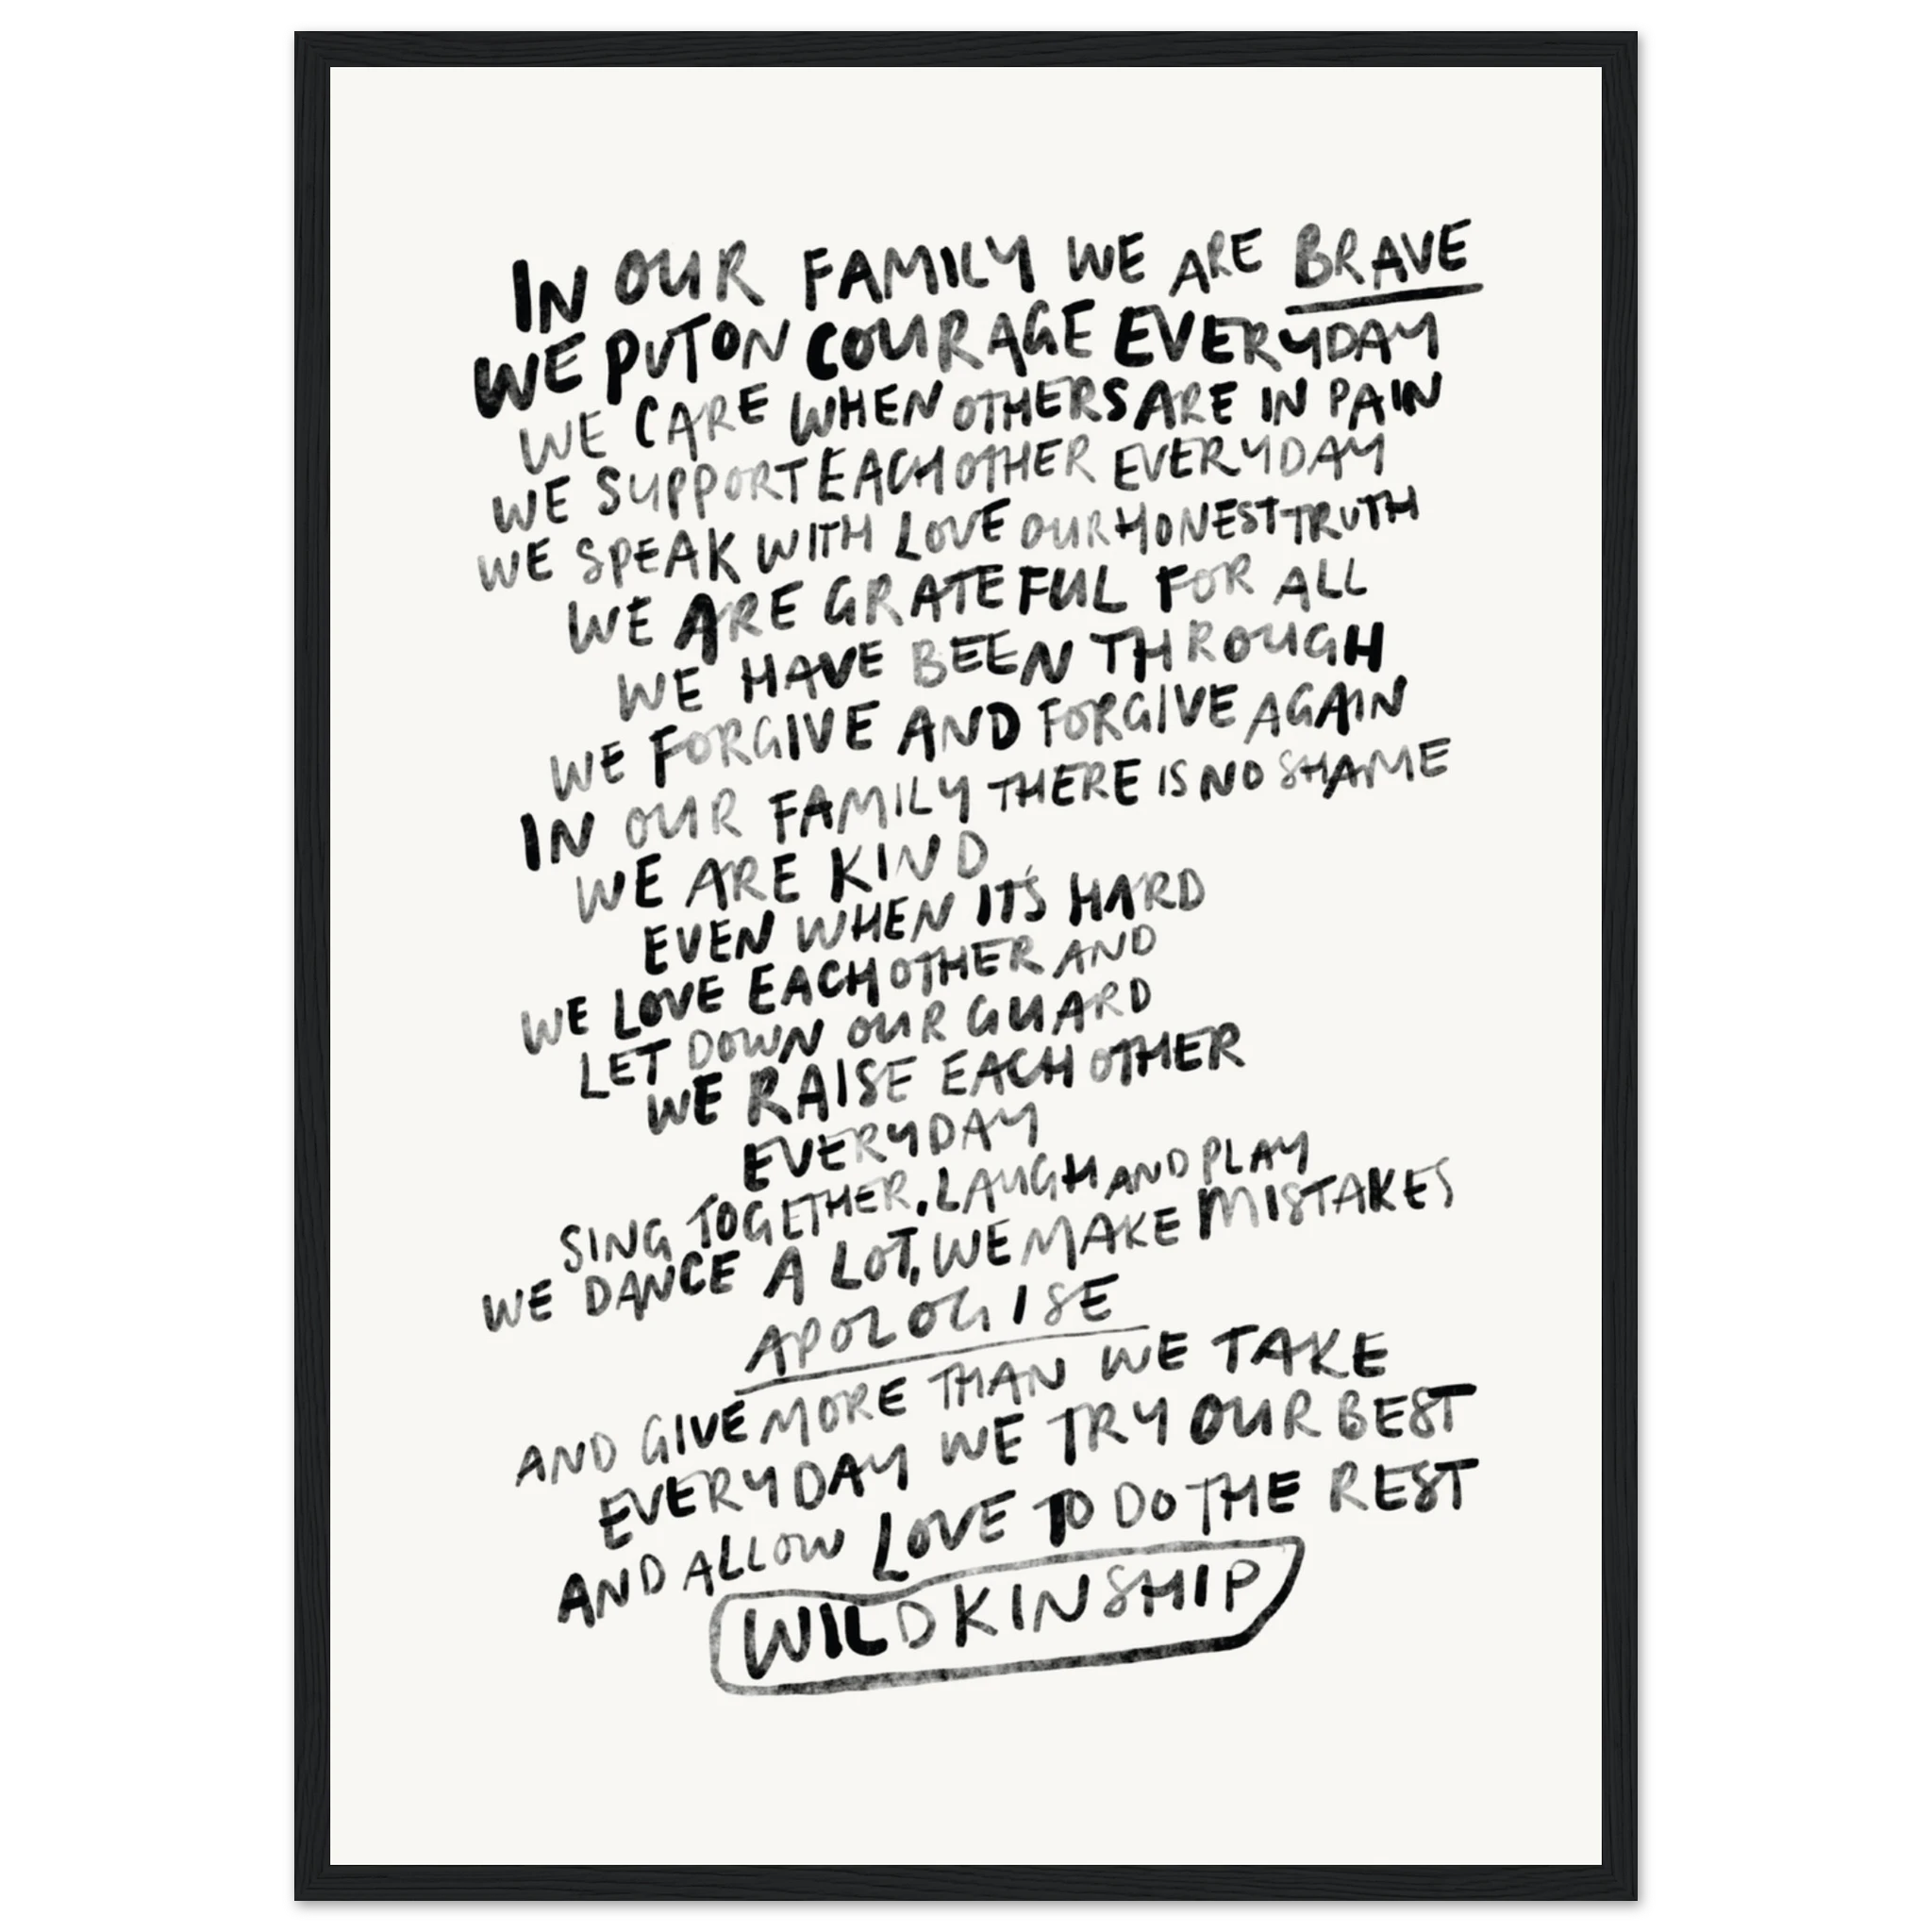 IN OUR FAMILY WE ARE BRAVE
WE PUT ON COURAGE EVERYDAY
WE CARE WHEN OTHERS ARE IN PAIN
WE SUPPORT EACH OTHER EVERYDAY
WE SPEAK WITH LOVE OUR HONEST TRUTH
WE ARE GRATEFUL FOR ALL
WE HAVE BEEN THROUGH
WE FORGIVE AND FORGIVE AGAIN
IN OUR FAMILY THERE IS NO SHAME
WE ARE KIND
EVEN WHEN IT'S HARD
WE LOVE EACH OTHER AND
LET DOWN OUR GUARD
WE RAISE EACH OTHER
EVERYDAY
SING TOGETHER, LAUGH AND PLAY
WE DANCE A LOT, WE MAKE MISTAKES
APOLOGISE
AND GIVE MORE THAN WE TAKE
EVERYDAY WE TRY OUR BEST
AND ALLOW LOVE TO DO THE REST
WILDKINSHIP